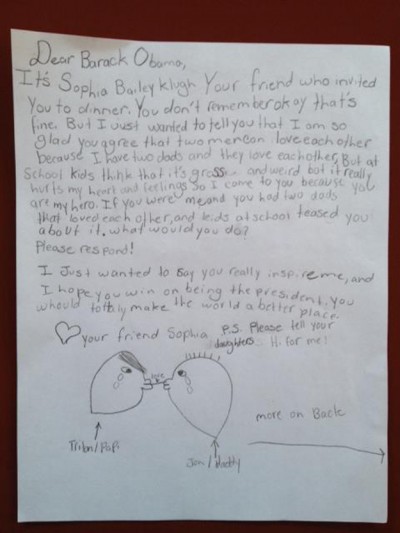 Dear Barack Obama,
It's Sophia Bailey Klugh Your friend who invited
You to dinner. You don't remember okay that's
fine. But I Just wanted to tell you that I am so
glad you agree that two men can love each other
because I have two dads and they love each other. But at
School kids think that it's gross and weird but it really
hurts my heart and feelings. So I come to you because you
are my hero. If you were me and you had two dads
that loved each other, and kids at school teased you
about it, what would you do?
Please respond!
I Just wanted to say you really inspire me, and
I hope you win on being the president. you
whould totally make the world a better place.
your friend Sophia
P.S. Please tell your
daughters Hi for me!
love
more on Back